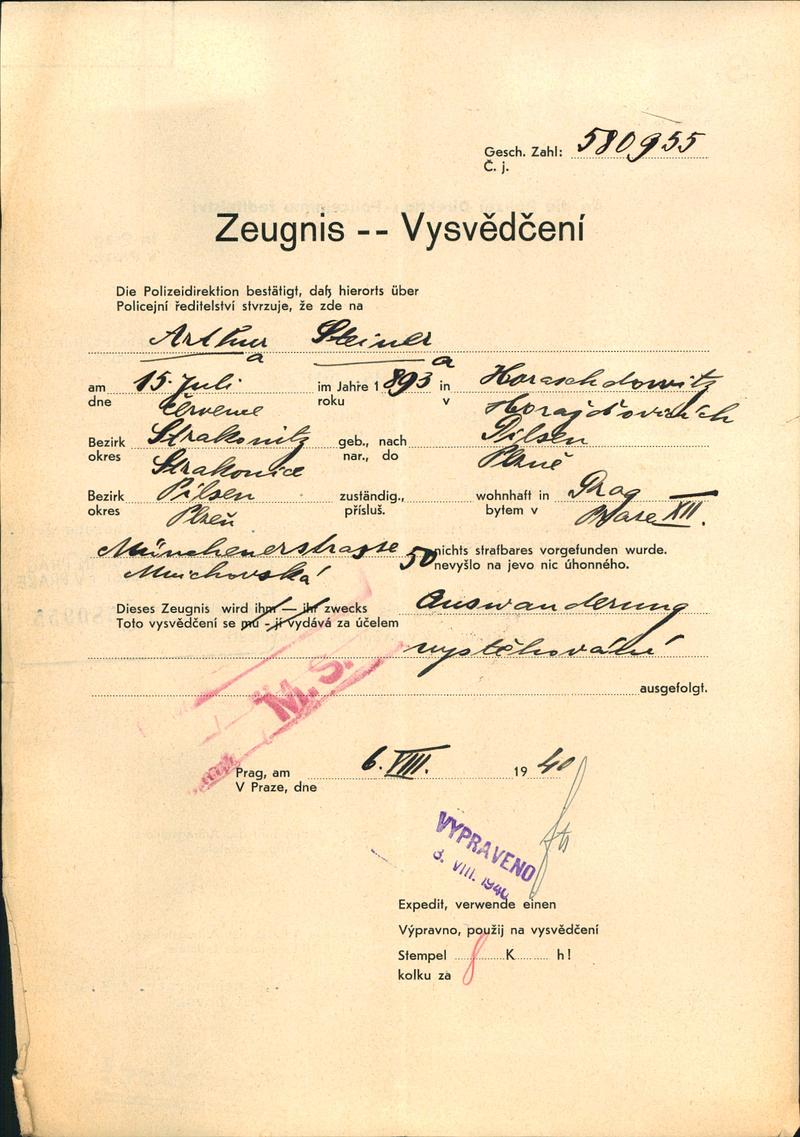 Gesch. Zahl: 580955
Č. j.
Zeugnis -- Vysvědčení
Die Polizeidirektion bestätigt, daß hierorts über
Policejní ředitelství stvrzuje, že zde na
Arthur Steiner
a a
am 15. Juli im Jahre 1893 in Horaschdowitz
dne července roku v Horažďovicích
Bezirk Strakonitz geb., nach Pilsen
okres Strakonice nar., do Plzně
Bezirk Pilsen zuständig., wohnhaft in Prag
okres Plzeň přísluš. bytem v Praze XII.
Münchenerstrasse 50 nichts strafbares vorgefunden wurde.
Mnichovská nevyšlo na jevo nic úhonného.
Dieses Zeugnis wird ihm — ihr zwecks Auswanderung
Toto vysvědčení se mu - jí vydává za účelem
vystěhování
ausgefolgt.
M. S.
Prag, am 6. VIII. 1940
V Praze, dne
VYPRAVENO
8. VIII. 1940
Expedit, verwende einen
Výpravno, použij na vysvědčení
Stempel 8 K h!
kolku za